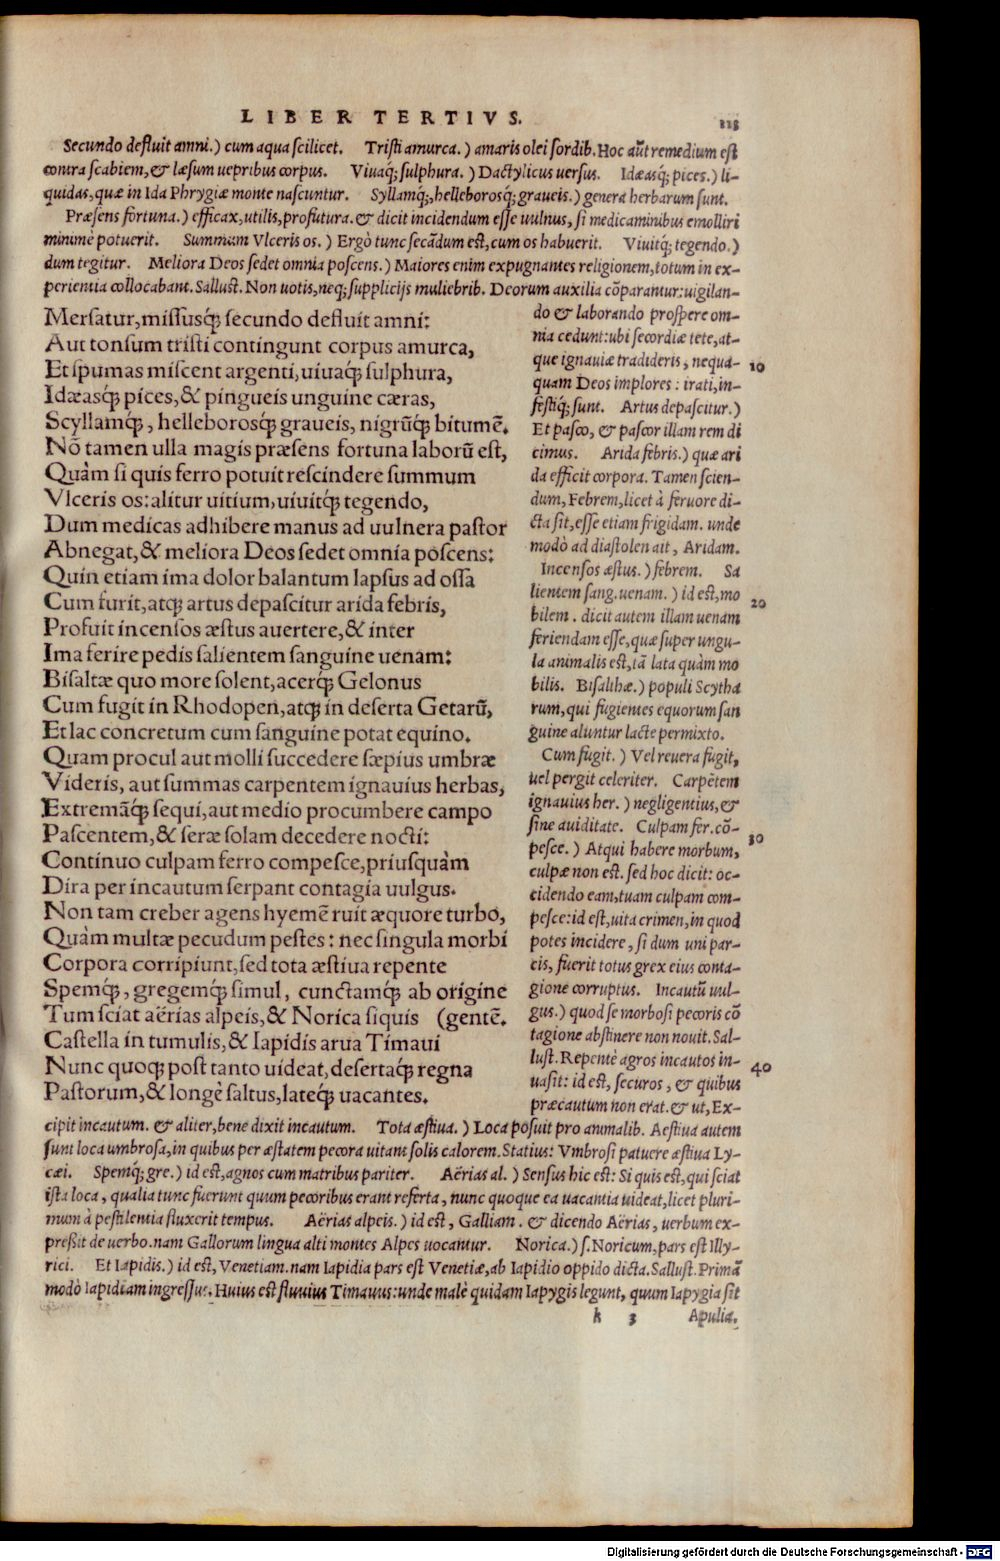 LIBER TERTIVS. 113
Secundo defluit amni.) cum aqua scilicet. Tristi amurca.) amaris olei sordib. Hoc aũt remedium est
contra scabiem, & læsum uepribus corpus. Viuaq; sulphura.) Dactylicus uersus. Idæasq; pices.) li-
quidas, quæ in Ida Phrygiæ monte nascuntur. Syllamq;, helleborosq; graueis.) genera herbarum sunt.
Præsens fortuna.) efficax, utilis, profutura. & dicit incidendum esse uulnus, si medicaminibus emolliri
minimè potuerit. Summum Vlceris os.) Ergò tunc secãdum est, cum os habuerit. Viuitq; tegendo.)
dum tegitur. Meliora Deos sedet omnia poscens.) Maiores enim expugnantes religionem, totum in ex-
perientia collocabant. Sallust. Non uotis, neq; supplicijs muliebrib. Deorum auxilia cõparantur: uigilan-
Mersatur, missusq; secundo defluit amni:
Aut tonsum tristi contingunt corpus amurca,
Et spumas miscent argenti, uiuaq; sulphura,
Idæasq; pices, & pingueis unguine cæras,
Scyllamq;, helleborosq; graueis, nigrũq; bitumẽ.
Nõ tamen ulla magis præsens fortuna laborũ est,
Quàm si quis ferro potuit rescindere summum
Vlceris os: alitur uitium, uiuitq; tegendo,
Dum medicas adhibere manus ad uulnera pastor
Abnegat, & meliora Deos sedet omnia poscens:
Quin etiam ima dolor balantum lapsus ad ossa
Cum furit, atq; artus depascitur arida febris,
Profuit incensos æstus auertere, & inter
Ima ferire pedis salientem sanguine uenam:
Bisaltæ quo more solent, acerq; Gelonus
Cum fugit in Rhodopen, atq; in deserta Getarũ,
Et lac concretum cum sanguine potat equino.
Quam procul aut molli succedere sæpius umbræ
Videris, aut summas carpentem ignauius herbas,
Extremãq; sequi, aut medio procumbere campo
Pascentem, & seræ solam decedere nocti:
Continuo culpam ferro compesce, priusquàm
Dira per incautum serpant contagia uulgus.
Non tam creber agens hyemẽ ruit æquore turbo,
Quàm multæ pecudum pestes: nec singula morbi
Corpora corripiunt, sed tota æstiua repente
Spemq;, gregemq; simul, cunctamq; ab origine
Tum sciat aërias alpeis, & Norica siquis (gentẽ.
Castella in tumulis, & Iapidis arua Timaui
Nunc quoq; post tanto uideat, desertaq; regna
Pastorum, & longè saltus, lateq; uacantes.
do & laborando prospere om-
nia cedunt: ubi secordiæ tete, at-
que ignauiæ tradideris, nequa- 10
quam Deos implores: irati, in-
festiq; sunt. Artus depascitur.)
Et pasco, & pascor illam rem di
cimus. Arida febris.) quæ ari
da efficit corpora. Tamen scien-
dum, Febrem, licet à feruore di-
cta sit, esse etiam frigidam. unde
modò ad diastolen ait, Aridam.
Incensos æstus.) febrem. Sa
lientem sang. uenam.) id est, mo 20
bilem. dicit autem illam uenam
feriendam esse, quæ super ungu-
la animalis est, tã lata quàm mo
bilis. Bisalthæ.) populi Scytha
rum, qui fugientes equorum san
guine aluntur lacte permixto.
Cum fugit.) Vel reuera fugit,
uel pergit celeriter. Carpẽtem
ignauius her.) negligentius, &
sine auiditate. Culpam fer. cõ- 30
pesce.) Atqui habere morbum,
culpæ non est. sed hoc dicit: oc-
cidendo eam, tuam culpam com-
pesce: id est, uita crimen, in quod
potes incidere, si dum uni par-
cis, fuerit totus grex eius conta-
gione corruptus. Incautũ uul-
gus.) quod se morbosi pecoris cõ
tagione abstinere non nouit. Sal-
lust. Repentè agros incautos in- 40
uasit: id est, securos, & quibus
præcautum non erat. & ut, Ex-
cipit incautum. & aliter, bene dixit incautum. Tota æstiua.) Loca posuit pro animalib. Aestiua autem
sunt loca umbrosa, in quibus per æstatem pecora uitant solis calorem. Statius: Vmbrosi patuere æstiua Ly-
cæi. Spemq; gre.) id est, agnos cum matribus pariter. Aërias al.) Sensus hic est: Si quis est, qui sciat
ista loca, qualia tunc fuerunt quum pecoribus erant referta, nunc quoque ea uacantia uideat, licet pluri-
mum à pestilentia fluxerit tempus. Aërias alpeis.) id est, Galliam. & dicendo Aërias, uerbum ex-
preßit de uerbo. nam Gallorum lingua alti montes Alpes uocantur. Norica.) s. Noricum, pars est Illy-
rici. Et Iapidis.) id est, Venetiam. nam Iapidia pars est Venetiæ, ab Iapidio oppido dicta. Sallust. Primã
modò Iapidiam ingressus. Huius est fluuius Timauus: unde malè quidam Iapygis legunt, quum Iapygia sit
k 3 Apuliæ.
Digitalisierung gefördert durch die Deutsche Forschungsgemeinschaft - DFG